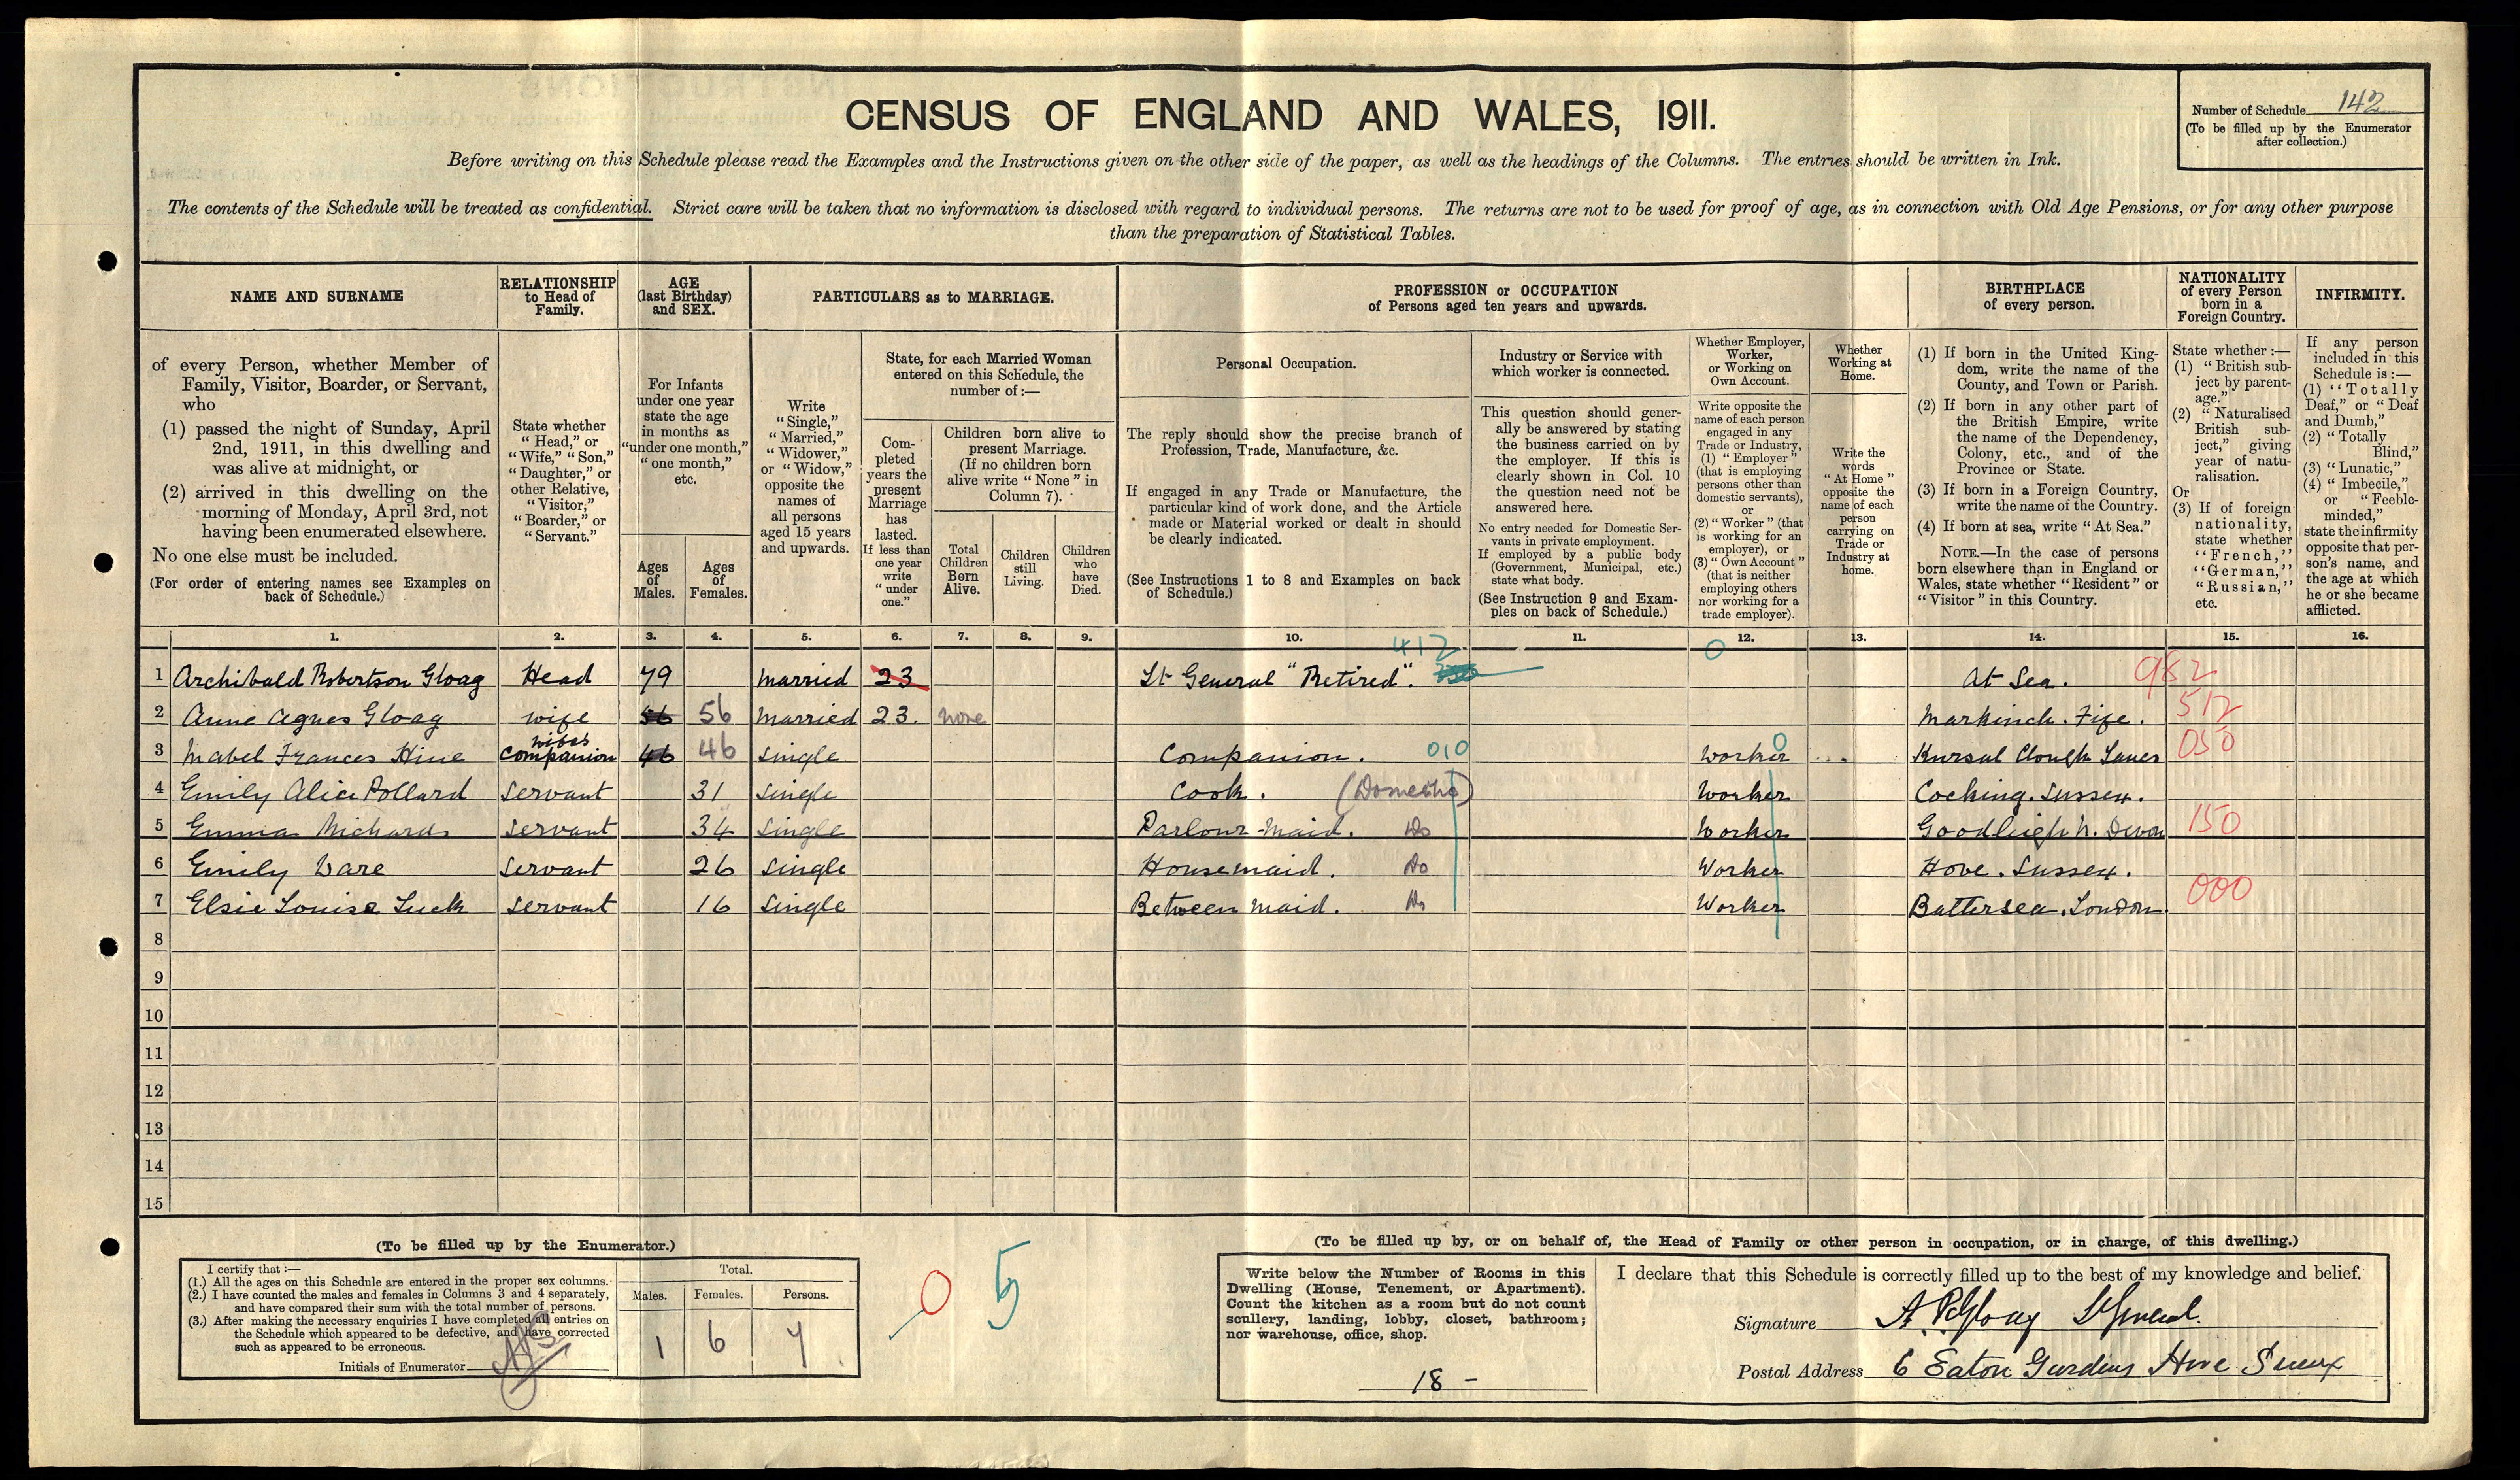 CENSUS OF ENGLAND AND WALES, 1911.
Number of Schedule 142
(To be filled up by the Enumerator
after collection.)
Before writing on this Schedule please read the Examples and the Instructions given on the other side of the paper, as well as the headings of the Columns. The entries should be written in Ink.
The contents of the Schedule will be treated as confidential. Strict care will be taken that no information is disclosed with regard to individual persons. The returns are not to be used for proof of age, as in connection with Old Age Pensions, or for any other purpose
than the preparation of Statistical Tables.
NAME AND SURNAME
of every Person, whether Member of
Family, Visitor, Boarder, or Servant,
who
(1) passed the night of Sunday, April
2nd, 1911, in this dwelling and
was alive at midnight, or
(2) arrived in this dwelling on the
morning of Monday, April 3rd, not
having been enumerated elsewhere.
No one else must be included.
(For order of entering names see Examples on
back of Schedule.)
RELATIONSHIP
to Head of
Family.
State whether
"Head," or
"Wife," "Son,"
"Daughter," or
other Relative,
"Visitor,"
"Boarder," or
"Servant."
AGE
(last Birthday)
and SEX.
For Infants
under one year
state the age
in months as
"under one month,"
"one month,"
etc.
Ages
of
Males.
Ages
of
Females.
PARTICULARS as to MARRIAGE.
Write
"Single,"
"Married,"
"Widower,"
or "Widow,"
opposite the
names of
all persons
aged 15 years
and upwards.
State, for each Married Woman
entered on this Schedule, the
number of:—
Com-
pleted
years the
present
Marriage
has
lasted.
If less than
one year
write
"under
one."
Children born alive to
present Marriage.
(If no children born
alive write "None" in
Column 7).
Total
Children
Born
Alive.
Children
still
Living.
Children
who
have
Died.
PROFESSION or OCCUPATION
of Persons aged ten years and upwards.
Personal Occupation.
The reply should show the precise branch of
Profession, Trade, Manufacture, &c.
If engaged in any Trade or Manufacture, the
particular kind of work done, and the Article
made or Material worked or dealt in should
be clearly indicated.
(See Instructions 1 to 8 and Examples on back
of Schedule.)
Industry or Service with
which worker is connected.
This question should gener-
ally be answered by stating
the business carried on by
the employer. If this is
clearly shown in Col. 10
the question need not be
answered here.
No entry needed for Domestic Ser-
vants in private employment.
If employed by a public body
(Government, Municipal, etc.)
state what body.
(See Instruction 9 and Exam-
ples on back of Schedule.)
Whether Employer,
Worker,
or Working on
Own Account.
Write opposite the
name of each person
engaged in any
Trade or Industry,
(1) "Employer"
(that is employing
persons other than
domestic servants),
or
(2) "Worker" (that
is working for an
employer), or
(3) "Own Account"
(that is neither
employing others
nor working for a
trade employer).
Whether
Working at
Home.
Write the
words
"At Home"
opposite the
name of each
person
carrying on
Trade or
Industry at
home.
BIRTHPLACE
of every person.
(1) If born in the United King-
dom, write the name of the
County, and Town or Parish.
(2) If born in any other part of
the British Empire, write
the name of the Dependency,
Colony, etc., and of the
Province or State.
(3) If born in a Foreign Country,
write the name of the Country.
(4) If born at sea, write "At Sea."
NOTE.—In the case of persons
born elsewhere than in England or
Wales, state whether "Resident" or
"Visitor" in this Country.
NATIONALITY
of every Person
born in a
Foreign Country.
State whether:—
(1) "British sub-
ject by parent-
age."
(2) "Naturalised
British sub-
ject," giving
year of natu-
ralisation.
Or
(3) If of foreign
nationality,
state whether
"French,"
"German,"
"Russian,"
etc.
INFIRMITY.
If any person
included in this
Schedule is:—
(1) "Totally
Deaf," or "Deaf
and Dumb,"
(2) "Totally
Blind,"
(3) "Lunatic,"
(4) "Imbecile,"
or "Feeble-
minded,"
state the infirmity
opposite that per-
son's name, and
the age at which
he or she became
afflicted.
1. 2. 3. 4. 5. 6. 7. 8. 9. 10. 11. 12. 13. 14. 15. 16.
412 0
1 Archibald Robertson Gloag Head 79 Married 23 Lt General "Retired". At Sea. 982
2 Anne Agnes Gloag wife 56 56 Married 23. none Markinch. Fife. 512
3 Mabel Frances Hine wifes companion 46 46 Single Companion. 010 worker 0 Kersal Clough Lancs 050
4 Emily Alice Pollard Servant 31 Single Cook. (Domestic) Worker Cocking. Sussex.
5 Emma Richards Servant 34 Single Parlour-Maid. Do Worker Goodleigh N. Devon 150
6 Emily Ware Servant 26 Single Housemaid. Do Worker Hove. Sussex.
7 Elsie Louise Luck Servant 16 Single Between Maid. Do Worker Battersea. London. 000
8
9
10
11
12
13
14
15
(To be filled up by the Enumerator.)
I certify that:—
(1.) All the ages on this Schedule are entered in the proper sex columns.
(2.) I have counted the males and females in Columns 3 and 4 separately,
and have compared their sum with the total number of persons.
(3.) After making the necessary enquiries I have completed all entries on
the Schedule which appeared to be defective, and have corrected
such as appeared to be erroneous.
Initials of Enumerator
Total.
Males. Females. Persons.
1 6 7
0 5
(To be filled up by, or on behalf of, the Head of Family or other person in occupation, or in charge, of this dwelling.)
Write below the Number of Rooms in this
Dwelling (House, Tenement, or Apartment).
Count the kitchen as a room but do not count
scullery, landing, lobby, closet, bathroom;
nor warehouse, office, shop.
18 -
I declare that this Schedule is correctly filled up to the best of my knowledge and belief.
Signature A R Gloag Lt General.
Postal Address 6 Eaton Gardens Hove Sussex